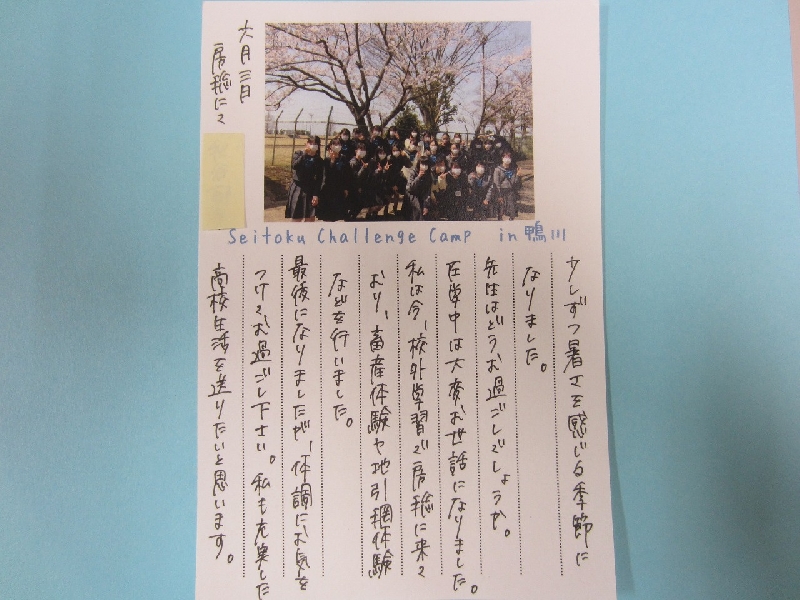 六月三日
房総にて
Seitoku Challenge Camp in 鴨川
少しずつ暑さを感じる季節に
なりました。
先生はどうお過ごしでしょうか。
在学中は大変お世話になりました。
私は今、校外学習で房総に来て
おり、畜産体験や地引網体験
などを行いました。
最後になりましたが、体調にお気を
つけてお過ごし下さい。私も充実した
高校生活を送りたいと思います。